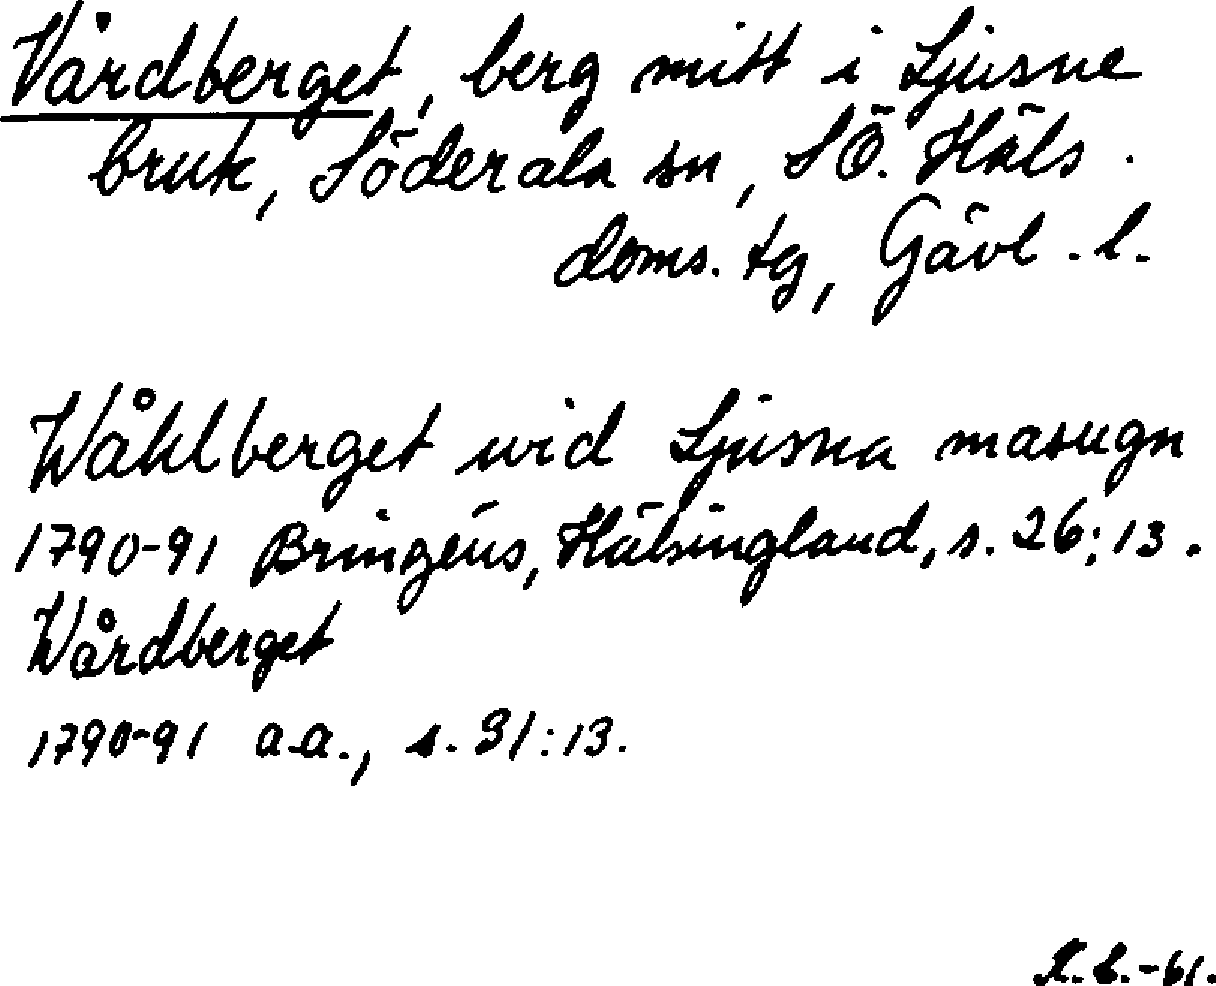 Vårdberget, berg mitt i Ljusne
bruk, Söderala sn, SÖ. Häls.
doms. tg, Gävl. l.
Wåhlberget wid Ljusna masugn
1790-91 Bringéus, Hälsingland, s. 26:13.
Wårdberget
1790-91 a.a., s. 31:13.
-61.